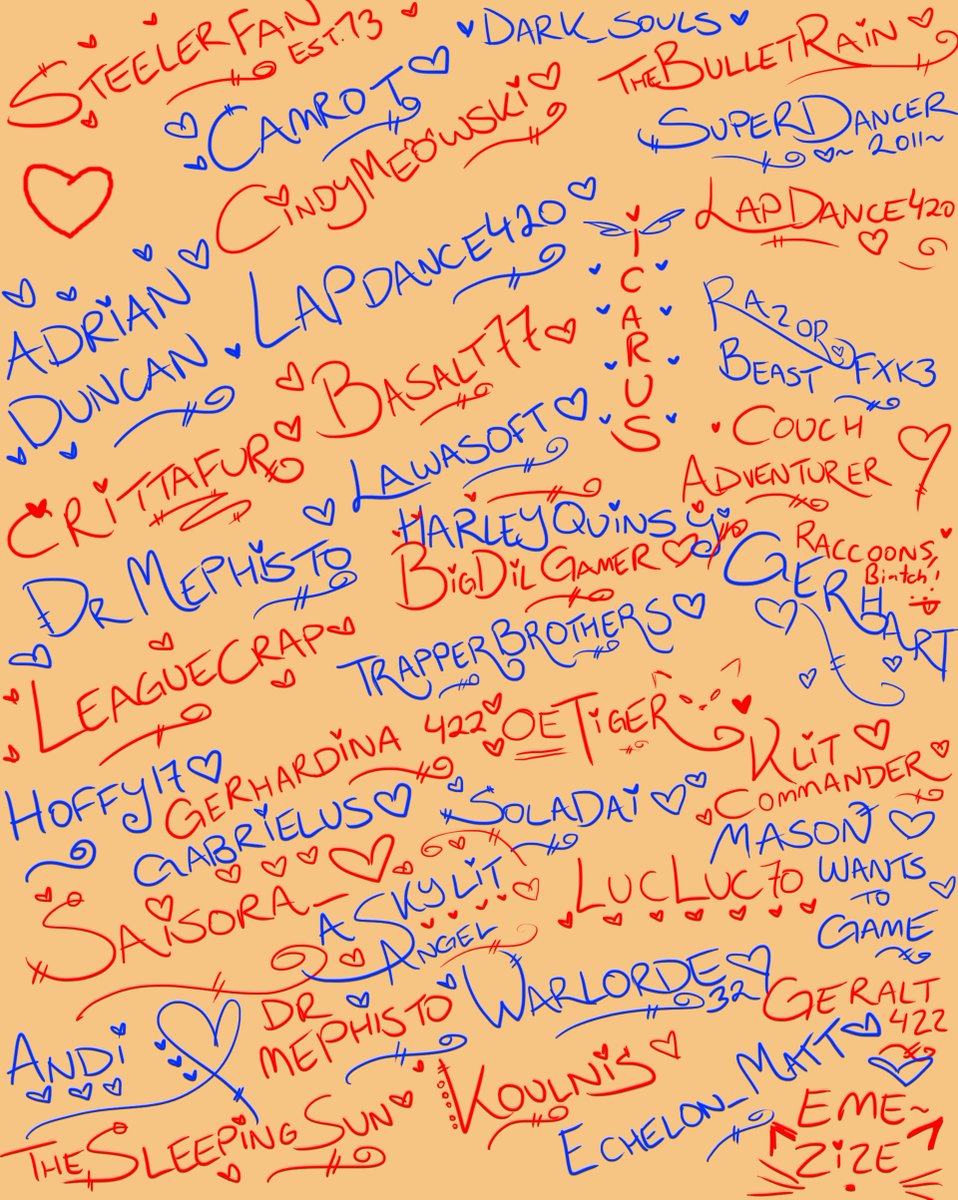 STEELERFAN
EST. 73
DARK_SOULS
THEBULLETRAIN
CAMROT
SUPERDANCER
~2011~
CINDYMEOWSKI
LAPDANCE420
LAPDANCE420
ICARUS
ADRIAN
DUNCAN
RAZOR
BEAST FXK3
BASALT77
COUCH
ADVENTURER
CRITTAFUR
LAWASOFT
HARLEYQUINSY
RACCOONS,
Biatch!
BIGDILGAMER
GERHART
DR MEPHISTO
TRAPPERBROTHERS
LEAGUECRAP
GERHARDINA 422
OETIGER
KLIT
COMMANDER
HOFFY17
GABRIELUS
SOLADAI
MASON
WANTS
TO
GAME
LUCLUC70
SAISORA_
A SKYLIT
ANGEL
WARLORDE
32
GERALT
422
ANDI
DR
MEPHISTO
KOULNIS
ECHELON_MATT
THESLEEPINGSUN
EME~
ZIZE